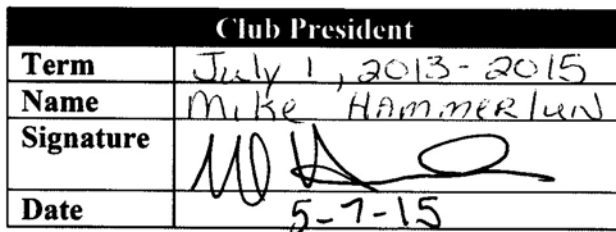 Club President
Term July 1, 2013-2015
Name Mike HAMMERlun
Signature
Date 5-7-15